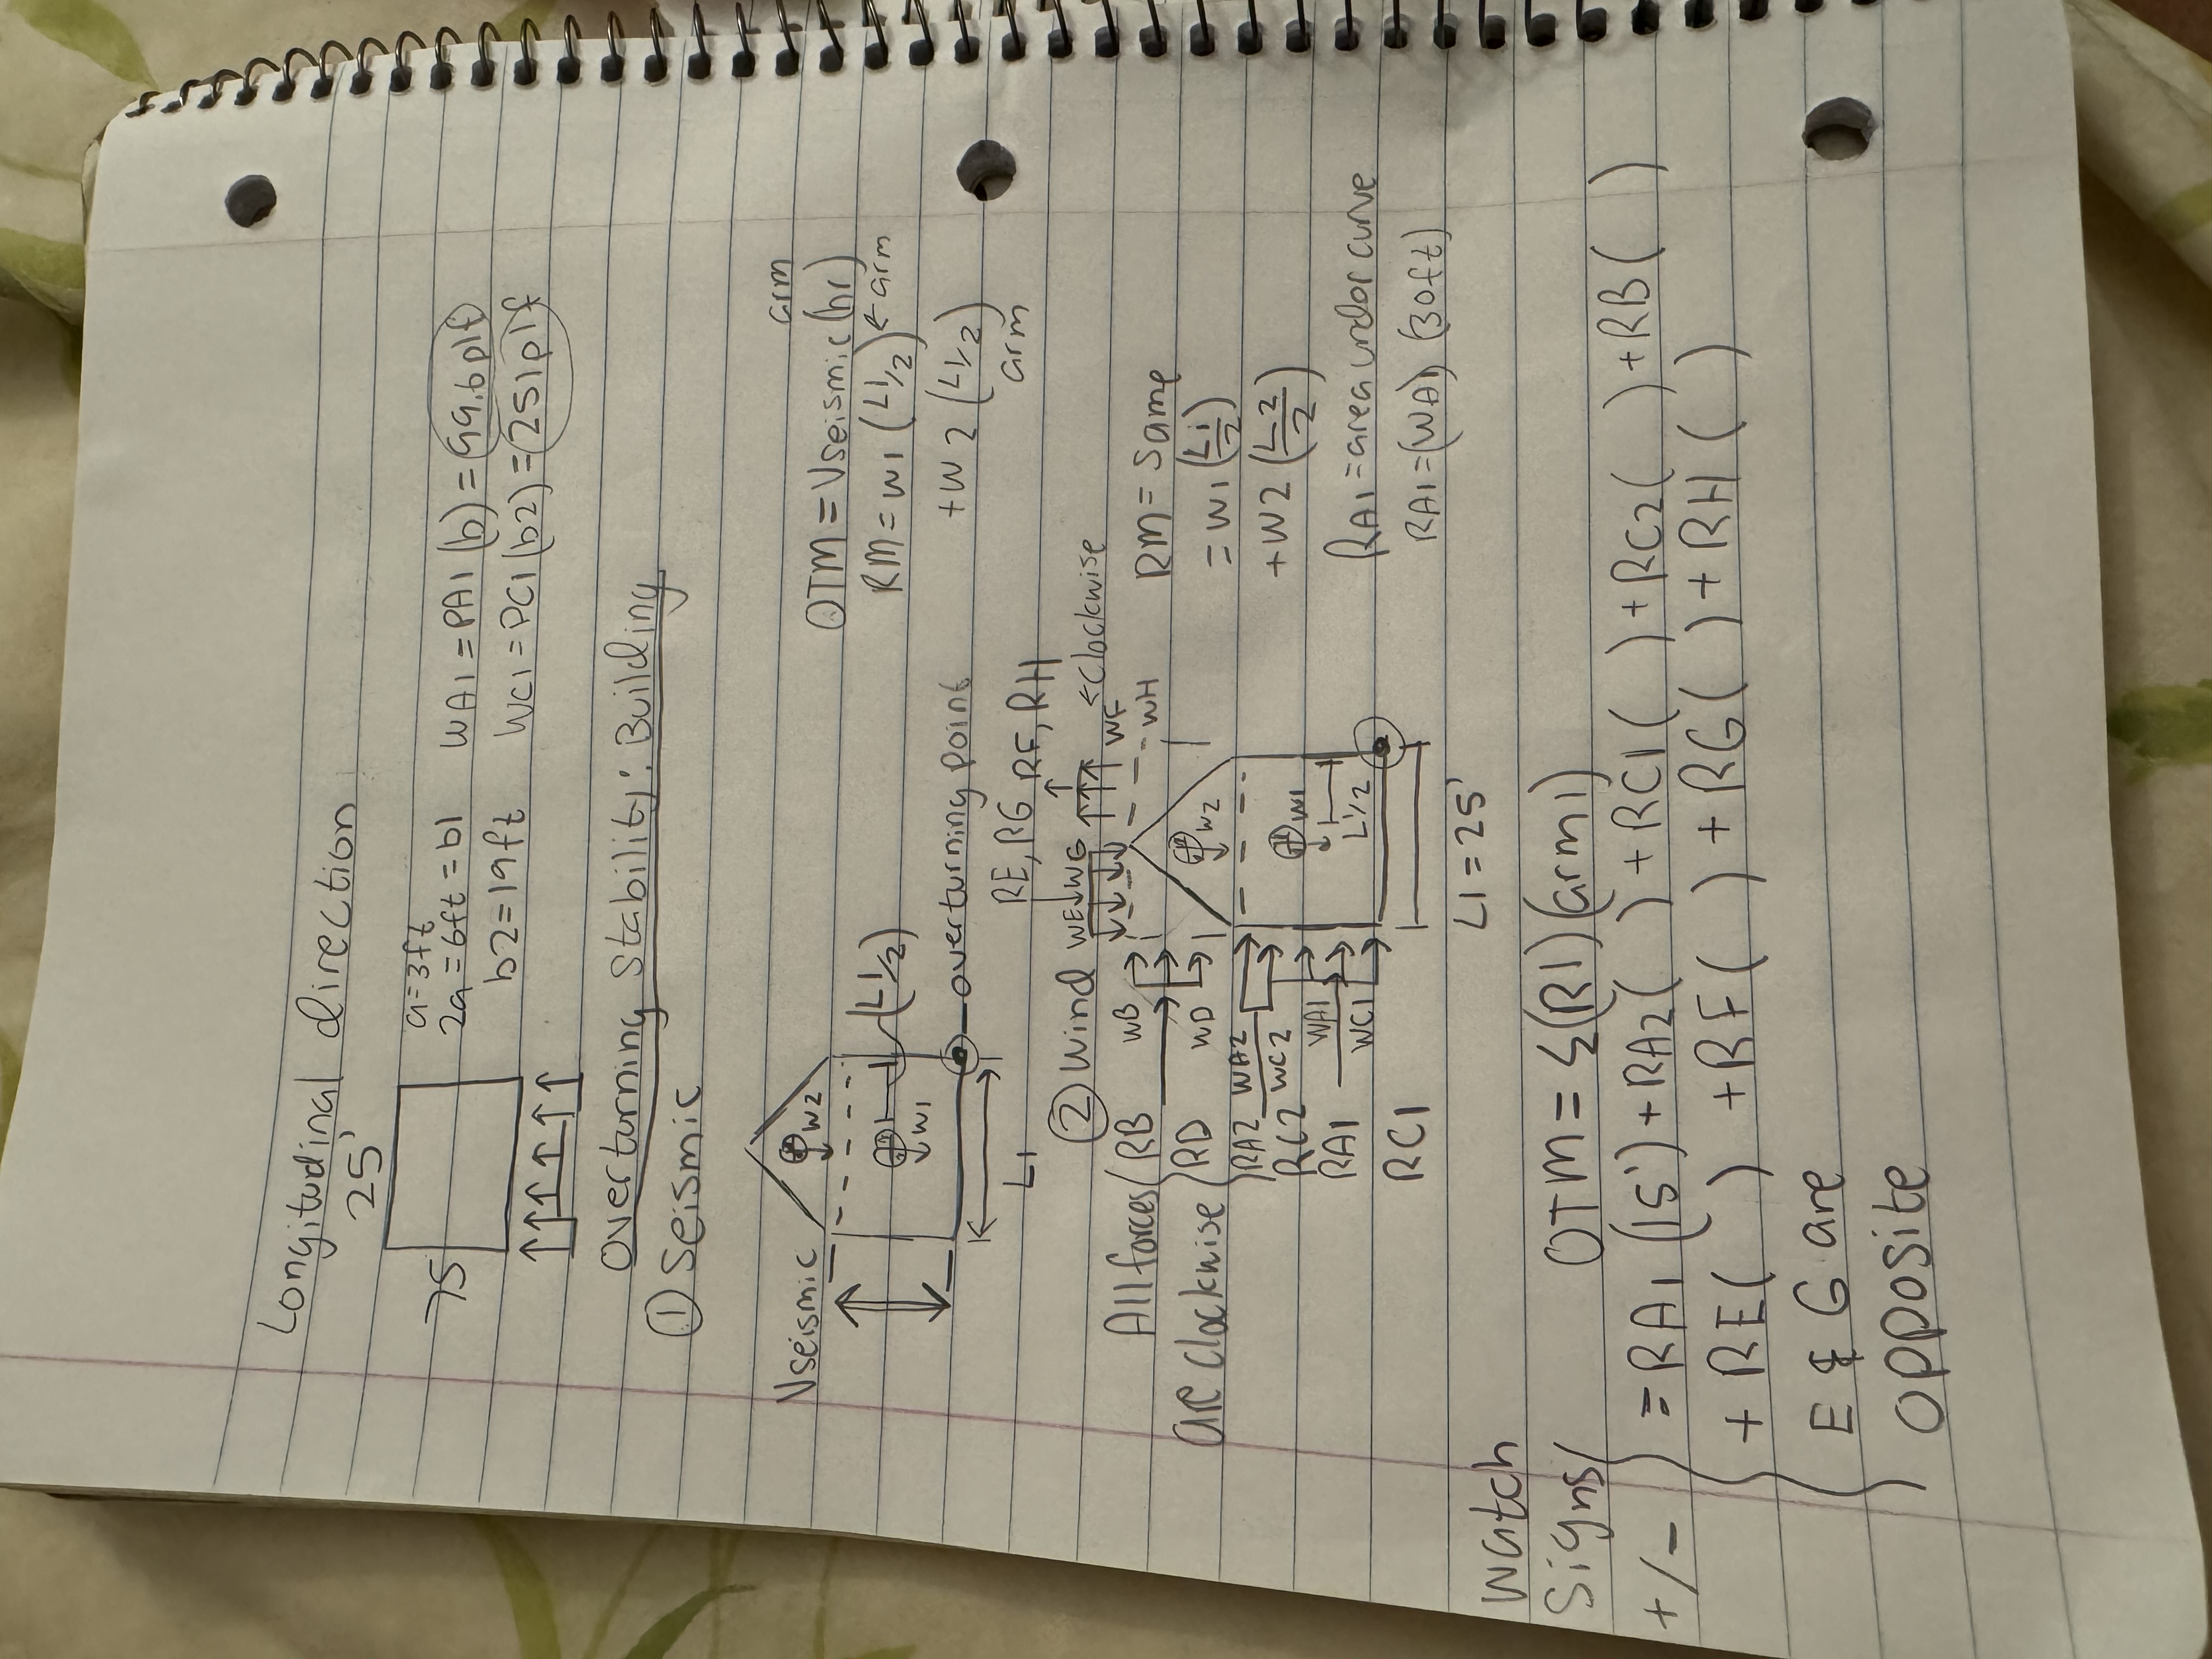 Longitudinal direction
25'
75
a=3ft
2a=6ft=b1
b2=19ft
WA1=PA1(b)=99.6plf
WC1=PC1(b2)=251plf
Overturning Stability: Building
① Seismic
Vseismic
W2
W1
(L1/2)
L1
overturning point
arm
OTM=Vseismic(hr)
RM=W1(L1/2)←arm
+W2(L1/2)
arm
② Wind
RE, RG RF, RH
WE WG
WF
←Clockwise
WH
WB
WD
WA2
WC2
WA1
WC1
All forces
are clockwise
RB
RD
RA2
RC2
RA1
RC1
W2
W1
L1/2
L1=25'
RM=same
=W1(L1/2)
+W2(L2/2)
RA1=area under curve
RA1=(WA1)(30ft)
Watch
Signs!
+/-
OTM=Σ(R1)(arm1)
=RA1(15')+RA2( )+RC1( )+RC2( )+RB( )
+RE( )+RF( )+RG( )+RH( )
E & G are
opposite